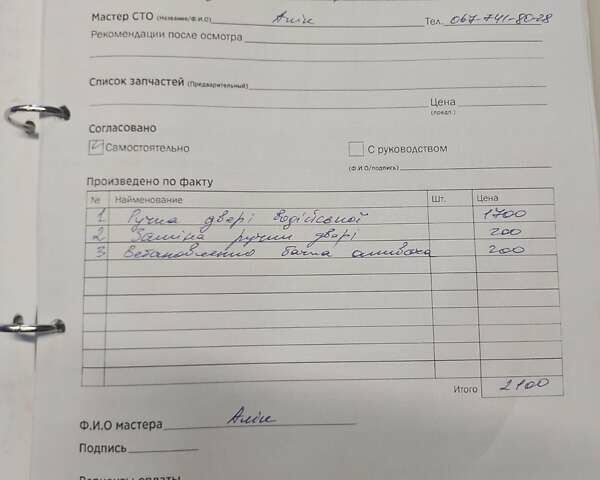 Мастер СТО (Название/Ф.И.О) Алік Тел. 067-741-80-28
Рекомендации после осмотра
Список запчастей (Предварительный)
Цена
(предп.)
Согласовано
Самостоятельно С руководством
(Ф.И.О/подпись)
Произведено по факту
№ Наименование Шт. Цена
1 Ручка двері водійської 1700
2 Заміна ручки двері 200
3 Встановленно бачка омивача 200
Итого 2100
Ф.И.О мастера Алік
Подпись
Варианты оплаты